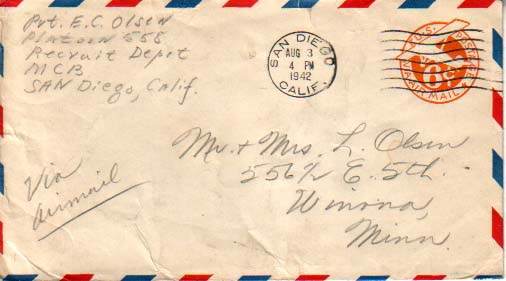 Pvt. E.C. Olsen
Platoon 558
Recruit Depot
MCB
SAN Diego, Calif.
SAN DIEGO
AUG 3
4 PM
1942
CALIF.
U.S. POSTAGE
6¢
VIA AIR MAIL
Mr. + Mrs. L. Olsen
556½ E. 5th.
Winona,
Minn.
Via
airmail